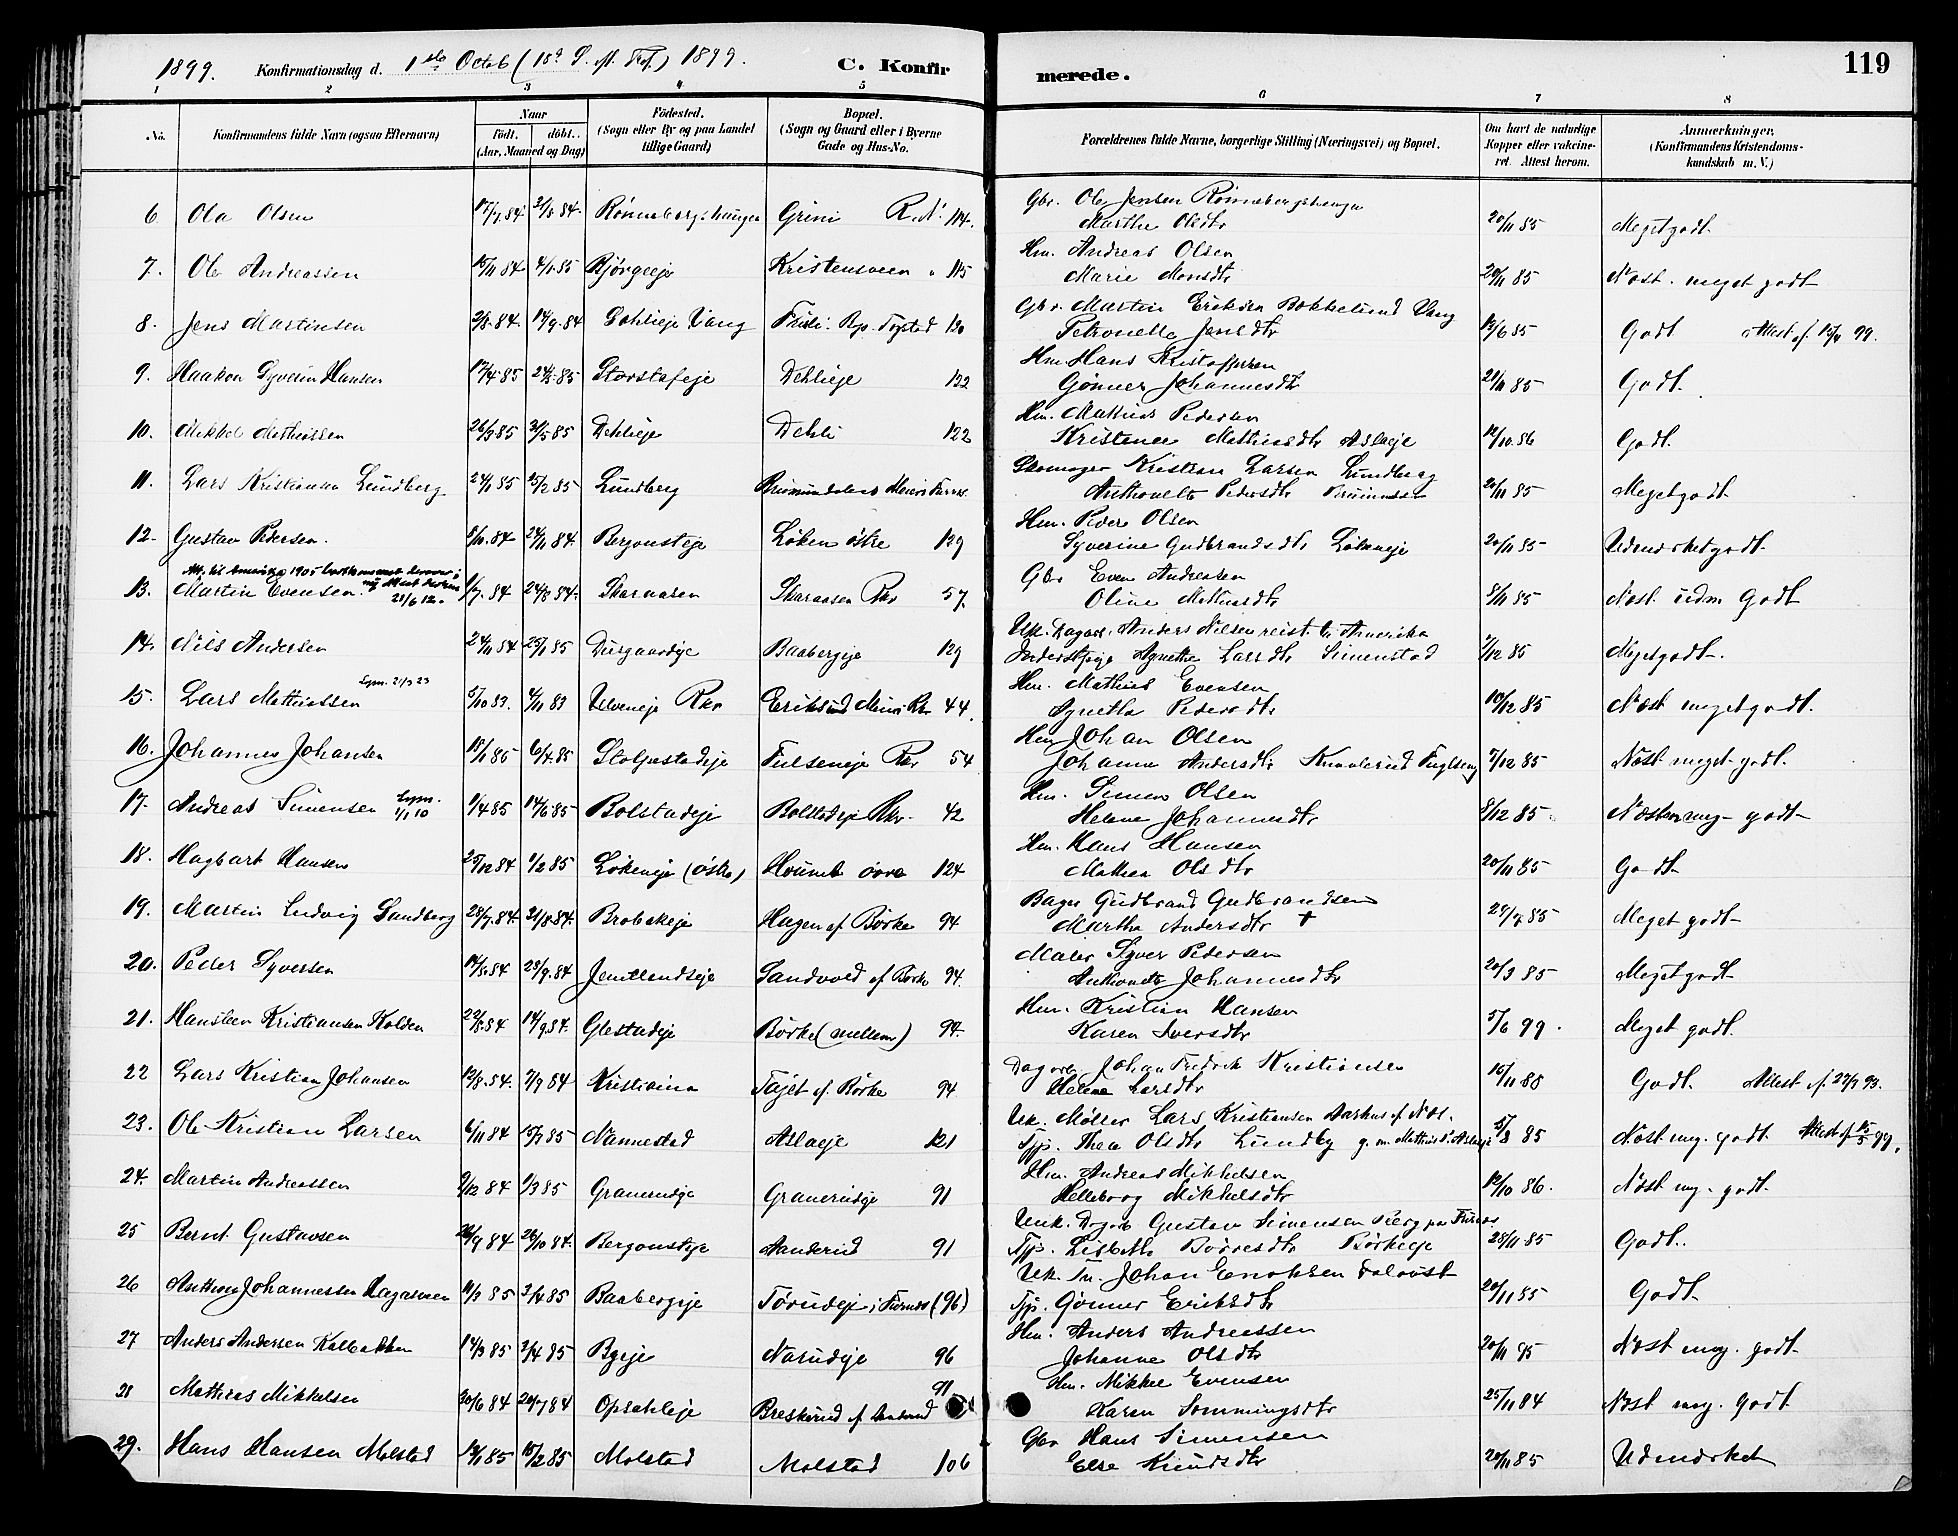 1899. Konfirmationsdag d. 1ste Octob (18de S. M. Tref.) 1899. C. Konfir
merede. 119
1 2 3 4 5
6 7 8
No. Konfirmandens fulde Navn (ogsaa Efternavn) Naar födt. döbt. (Aar, Maaned og Dag) Födested. (Sogn eller By og paa Landet tillige Gaard) Bopæl. (Sogn og Gaard eller i Byerne Gade og Hus-No.
Forældrenes fulde Navne, borgerlige Stilling (Næringsvei) og Bopæl. Om havt de naturlige Kopper eller vakcineret. Attest herom. Anmerkninger. (Konfirmandens Kristendomskundskab m. V.)
6 Ola Olsen 17/7.84 3/8.84. Grini R.N. 114.
Gbr. Ole Jensen
Marthe Olsdtr 20/11 85 Megetgodt.
7. Ole Andreassen 15/11 84 4/1.85 Bjørgeeje Kristensveen " 115
Hm. Andreas Olsen
Marie Monsdtr 20/11 85 Næst. meget godt
8. Jens Martinsen 2/8.84. 14/9.84
Gbr. Martin Eriksen Bakkelund Vang
Petronelle Jensdtr 12/6 85 Godt Attest af 15/4 99.
9. Haakon Syverin Hansen 17/4.85 24/5.85 Storstafeje Dehlieje 122
Hm. Hans Kristoffersen
Gønner Johannesdtr 21/11 85 Godt.
10. Mikkel Mathiassen 26/3 85 31/5 85 Dehlieje Dehli 122
Hm. Mathias Pedersen
Kristence Mathiasdtr Aslaeje 12/10.86 Godt.
11. Lars Kristiansen Lundberg 24/1 85 15/2 85 Lundberg
Skomager Kristian Larsen Lundberg
Anthonette Pedersdtr 20/11 85 Megetgodt
12. Gustav Pedersen. 5/10.84 24/11 84. Bergansteje Løken østre 129
Hm. Peder Olsen
Syverine Gudbrandsdtr Løkeneje 20/11 85 Udmærketgodt.
13. Martin Evensen. 1/7.84 24/8 84. Skaraasen Skaraasen Rkr 57.
Att. til Amerika 1905
21/6 12.
Gbr Even Andreasen
Oline Mathiasdtr 8/11 85 Næst. udm Godt
14. Nils Andersen 24/11 84 25/1 85 Baabergeje 129
Uk. Dagarb. Anders Nilsen reist til Amerika
Inderstpige Agnethe Larsdtr Simenstad 1/12 85 Megetgodt.
15. Lars Mathiassen 5/10 83. 4/11 83 Rkr 44.
Lysn. 21/3 23
Hm. Mathias Evensen
Agnethe Pedersdtr 10/12 85 Næst megetgodt.
16. Johannes Johansen 15/1 85 6/4.85 Stolpestadeje Fulseneje Rkr 54
Hm Johan Olsen
Johanne Andersdtr 7/12 85 Næst meget godt.
17. Andreas Simensen Lysn. 1/1 10 1/4 85 14/6 85 Bolstadeje Bolstadeje Rkr. 42
Hm. Simen Olsen
Helene Johannesdtr 8/12 85 Næsten meg. godt
18. Hagbart Hansen 25/12 84 1/2 85 Løkeneje (østre) 124
Hm. Hans Hansen
Mathea Olsdtr 20/11 85 Godt
19. Martin Ludvig Sandberg 28/7.84. 31/8.84. Hagen af Børke 94
Bager Gudbrand Gudbrandsen
Marthe Andersdtr + Meget godt
20. Peder Syversen 14/8.84 28/9.84 Jemtlandseje Sandvold af Børke 94.
Maler Syver Pedersen
Anthonette Johannesdtr 20/3 85 Megetgodt
21. Hansteen Kristiansen Kolden 22/8 84 14/9 84. Glestadeje Børke (mellem) 94.
Hm. Kristian Hansen
Karen Iversdtr 5/6 99. Meget godt.
22 Lars Kristian Johansen 12/8.84. 7/9 84 Kristiania Tajet af Børke 94
Dagarb Johan Fredrik Kristiansen
Helene Larsdtr Godt. Attest af 27/7 93.
23. Ole Kristian Larsen 6/11 84 Nannestad Aslaeje 121
Uk. Møller Lars Kristiansen Aarhus af Næs.
Tjp. Thea Olsdtr Lundby g. m. Mathias Aslaeje 5/8 85 Næst meg. godt. Attest af 15/5 99.
24. Martin Andreassen 9/12 84 1/3 85 Graverudeje Graverudeje 91
Hm. Andreas Mikkelsen
Helleborg Mikkelsdtr 12/10 86. Næst meg. godt.
25 Bernt Gustavsen 26/10 84. Bergansteje Aanderud 91
Unk. Dagarb Gustav Simensen
Tjp. Lisbeth Børresdtr Børkeeje 28/11 85 Godt..
26 Anthon Johannessen Hagaseen 11/3 85 3/4 85 Baabergeje Tørudeje i Furnes (96)
Uk. Tm. Johan Enoksen
Tjp. Gønner Eriksdtr 20/11 85 Godt
27 Anders Andersen Kalbakken 14/3 85 3/4 85 Bgeje Narudeje 96
Hm. Anders Andreassen
Johanne Olsdtr 20/11 85 Næst meg. godt
28 Mathias Mikkelsen 20/6 84 Opsahleje 91
Hm. Mikkel Evensen
Karen Sommingsdtr 25/11 84 Næst meg. godt
29. Hans Hansen Molstad 12/1 85 15/2 85 Molstad Molstad 106
Gbr Hans Simensen
Else Knudsdtr 20/11 85 Udmærket